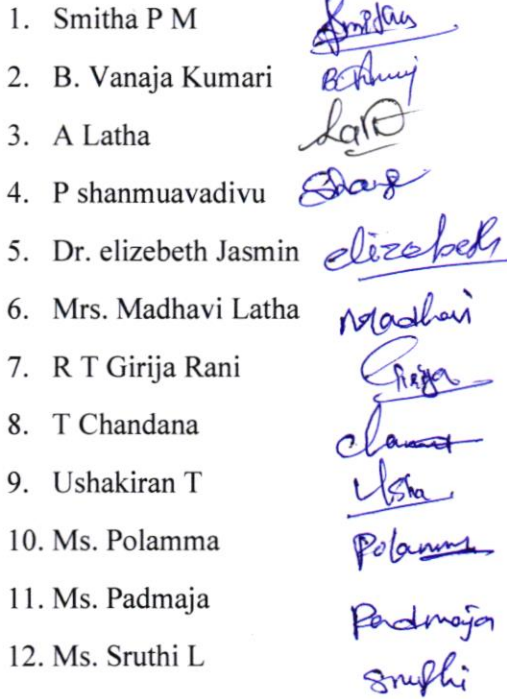 1. Smitha P M Smitha
2. B. Vanaja Kumari
3. A Latha Latha
4. P shanmuavadivu
5. Dr. elizebeth Jasmin elizebeth
6. Mrs. Madhavi Latha Madhavi
7. R T Girija Rani Girija
8. T Chandana
9. Ushakiran T Usha
10. Ms. Polamma Polamma
11. Ms. Padmaja Padmaja
12. Ms. Sruthi L Sruthi